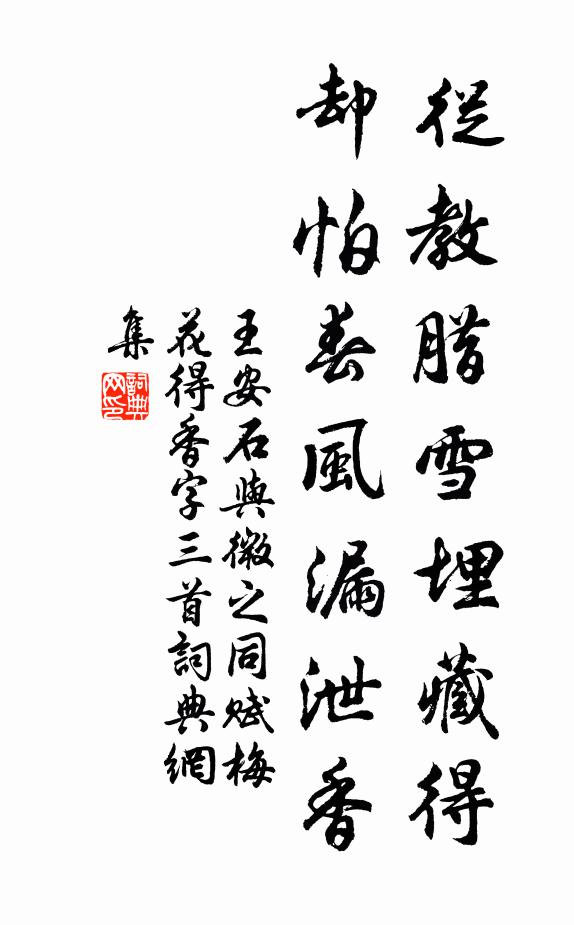 從教腊雪埋藏得
却怕春風漏泄香
王安石與微之同賦梅
花得香字三首詞典網
集
詞典
网印